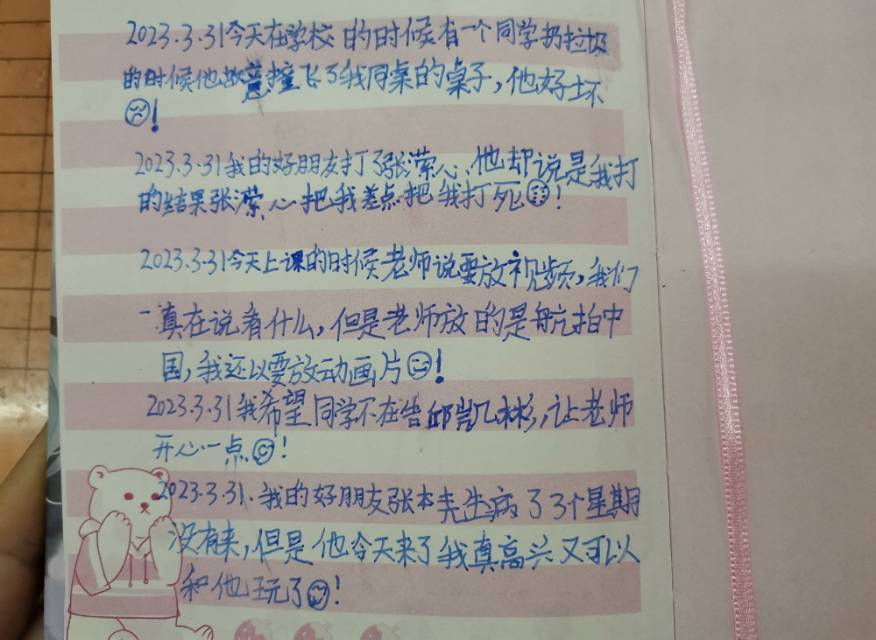 2023.3.31今天在学校的时候有一个同学扔垃圾
的时候他故意撞飞了我同桌的桌子,他好坏
!
2023.3.31我的好朋友打了张潆心、他却说是我打
的结果张潆心把我差点把我打死!
2023.3.31今天上课的时候老师说要放视频,我们
一真在说看什么,但是老师放的是航拍中
国,我还以要放动画片!
2023.3.31我希望同学不在告邱凯彬,让老师
开心一点!
2023.3.31、我的好朋友张本先生病了3个星期
没有来,但是他今天来了我真高兴又可以
和他玩了!